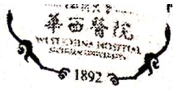 華西醫院
WEST CHINA HOSPITAL
SICHUAN UNIVERSITY
1892